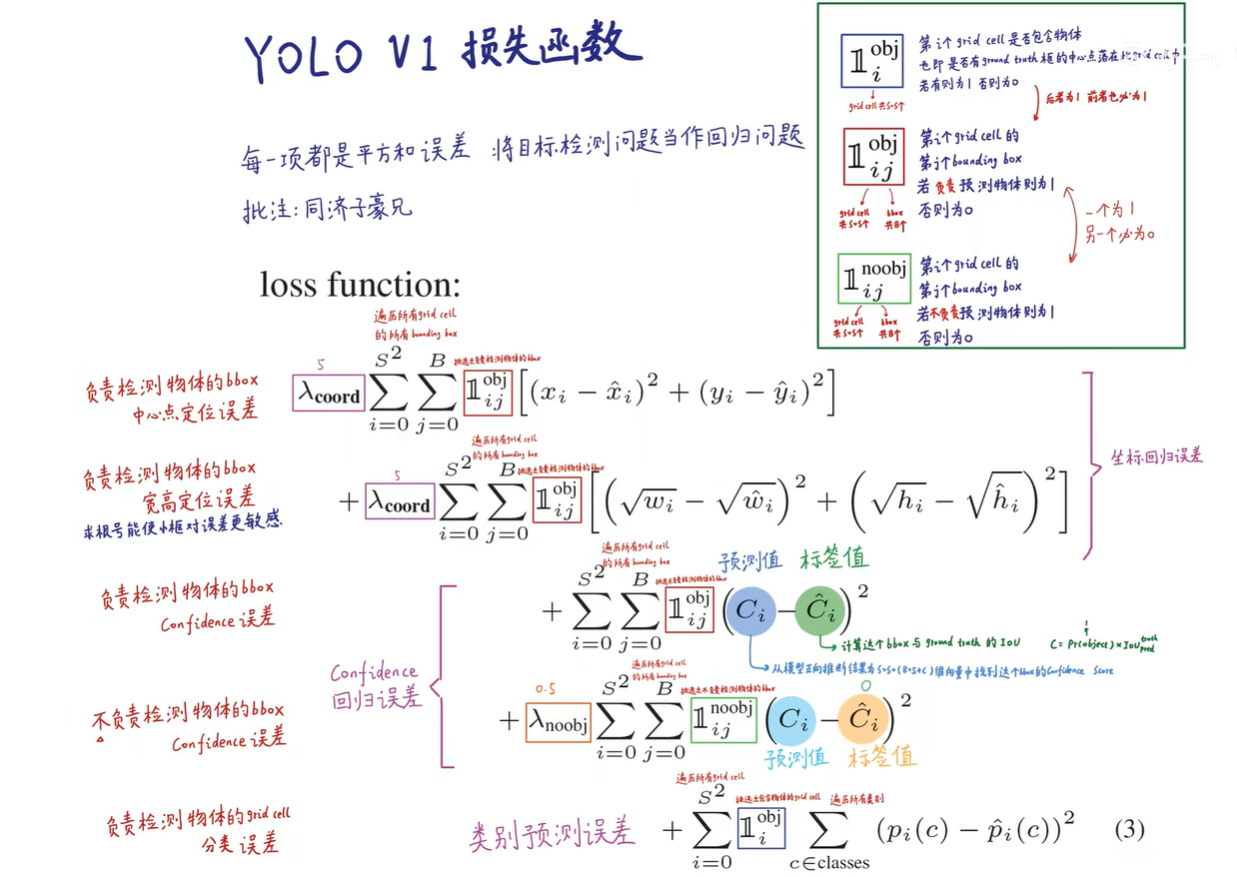 YOLO V1 损失函数
每一项都是平方和误差 将目标检测问题当作回归问题
批注：同济子豪兄
𝟙 obj i
grid cell共S×S个
第i个grid cell是否包含物体
也即是否有ground truth框的中心点落在此grid cell中
若有则为1 否则为0
后者为1 前者也必为1
𝟙 obj ij
grid cell 共S×S个
bbox 共B个
第i个grid cell的
第j个bounding box
若负责预测物体则为1
否则为0
一个为1
另一个必为0
𝟙 noobj ij
grid cell 共S×S个
bbox 共B个
第i个grid cell的
第j个bounding box
若不负责预测物体则为1
否则为0
loss function:
遍历所有grid cell
的所有bounding box
挑选出负责检测物体的bbox
5
负责检测物体的bbox
中心点定位误差
λcoord ∑_{i=0}^{S^2} ∑_{j=0}^{B} 𝟙_{ij}^{obj} [(x_i − x̂_i)^2 + (y_i − ŷ_i)^2]
遍历所有grid cell
的所有bounding box
挑选出负责检测物体的bbox
5
负责检测物体的bbox
宽高定位误差
求根号能使小框对误差更敏感
+ λcoord ∑_{i=0}^{S^2} ∑_{j=0}^{B} 𝟙_{ij}^{obj} [(√w_i − √ŵ_i)^2 + (√h_i − √ĥ_i)^2]
坐标回归误差
遍历所有grid cell
的所有bounding box
挑选出负责检测物体的bbox
预测值 标签值
负责检测物体的bbox
Confidence误差
+ ∑_{i=0}^{S^2} ∑_{j=0}^{B} 𝟙_{ij}^{obj} (C_i − Ĉ_i)^2
计算这个bbox与ground truth的IoU
C = Pr(object) × IoU^{truth}_{pred}
1
从模型正向推断结果为S×S×(B×5+C)维向量中找到这个bbox的Confidence Score
Confidence
回归误差
遍历所有grid cell
的所有bounding box
挑选出不负责检测物体的bbox
0.5
0
不负责检测物体的bbox
Confidence误差
+ λnoobj ∑_{i=0}^{S^2} ∑_{j=0}^{B} 𝟙_{ij}^{noobj} (C_i − Ĉ_i)^2
预测值 标签值
遍历所有grid cell
挑选出包含物体的grid cell
遍历所有类别
负责检测物体的grid cell
分类误差
类别预测误差
+ ∑_{i=0}^{S^2} 𝟙_{i}^{obj} ∑_{c∈classes} (p_i(c) − p̂_i(c))^2 (3)